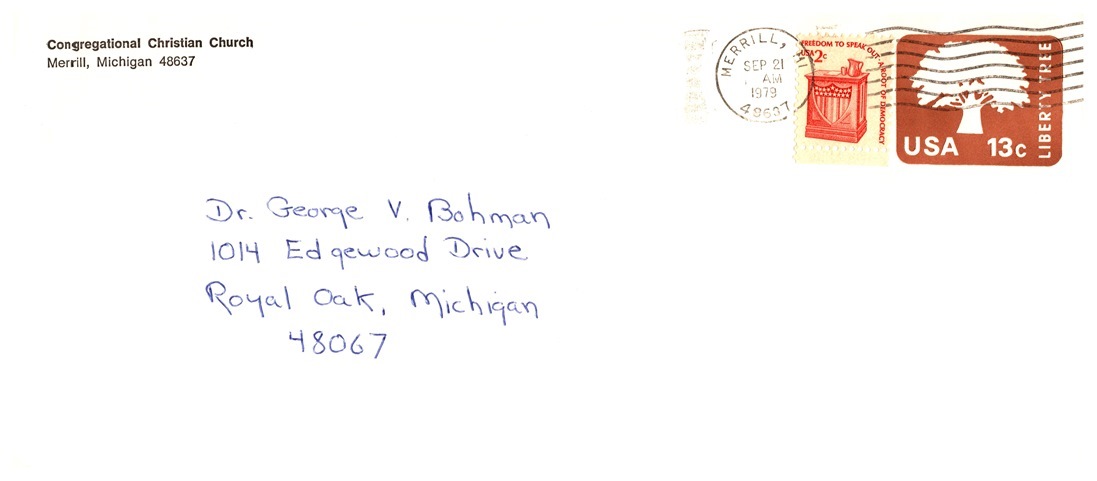 Congregational Christian Church
Merrill, Michigan 48637
MERRILL, MI
SEP 21
AM
1979
48637
FREEDOM TO SPEAK OUT-A ROOT OF DEMOCRACY
USA 2c
USA 13c
LIBERTY TREE
Dr. George V. Bohman
1014 Edgewood Drive
Royal Oak, Michigan
48067